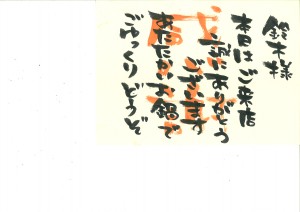 鈴木様
本日はご来店
誠にありがとう
ございます
あたたかいお鍋で
ごゆっくりどうぞ